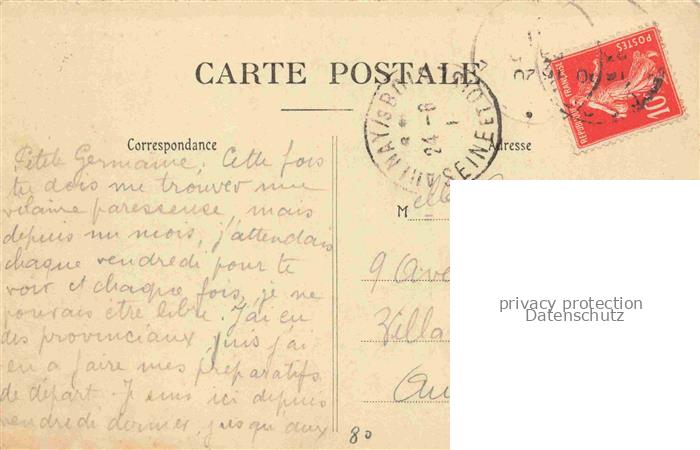 CARTE POSTALE
Correspondance
Adresse
Petite Germaine, Cette fois
tu dois me trouver une
vilaine paresseuse, mais
depuis un mois, j'attendais
chaque vendredi pour te
voir et chaque fois, je ne
pouvais être libre. J'ai eu
des provinciaux, puis j'ai
eu à faire mes préparatifs
de départ. Je suis ici depuis
vendredi dernier, jusqu'aux
M elle
9 Ave
Villa
Au
80
POSTES
REPUBLIQUE FRANÇAISE
10
AULNAY
24 -8
SEINE ET OISE
privacy protection
Datenschutz